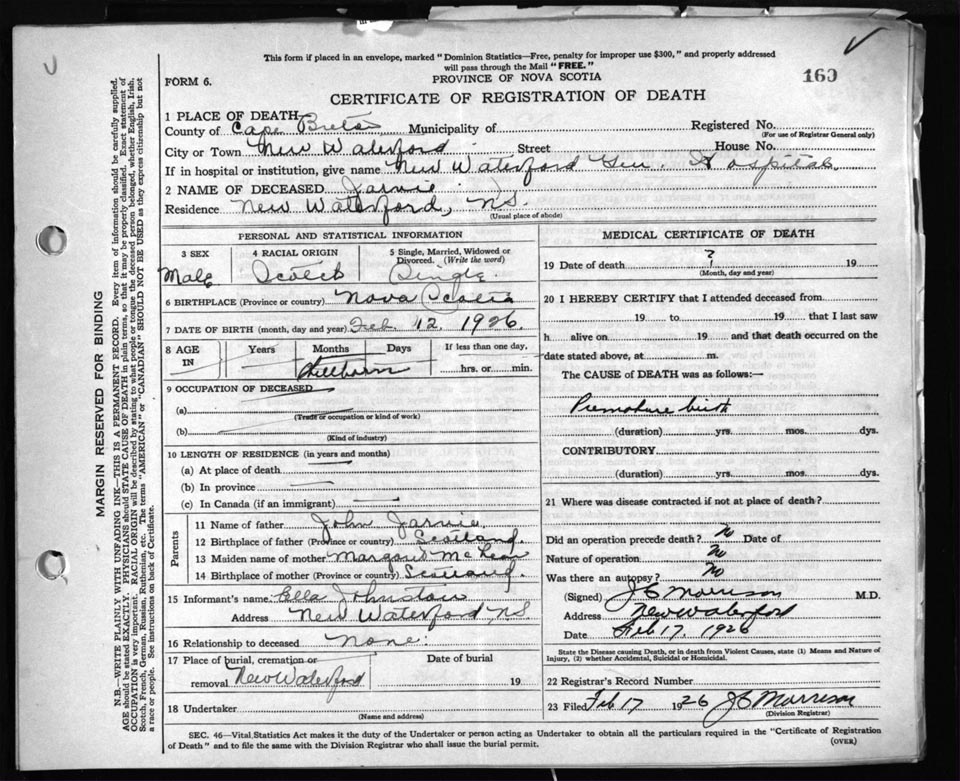 This form if placed in an envelope, marked "Dominion Statistics—Free, penalty for improper use $300," and properly addressed
will pass through the Mail "FREE."
160
FORM 6.
PROVINCE OF NOVA SCOTIA
CERTIFICATE OF REGISTRATION OF DEATH
1 PLACE OF DEATH
County of Cape Breton Municipality of Registered No.
(For use of Registrar General only)
City or Town New Waterford Street House No.
If in hospital or institution, give name New Waterford Gen. Hospital
2 NAME OF DECEASED Jarvie
Residence New Waterford, N.S.
(Usual place of abode)
PERSONAL AND STATISTICAL INFORMATION
3 SEX 4 RACIAL ORIGIN 5 Single, Married, Widowed or
Divorced. (Write the word)
Male Scotch Single.
6 BIRTHPLACE (Province or country) Nova Scotia
7 DATE OF BIRTH (month, day and year) Feb. 12, 1926.
8 AGE IN Years Months Days If less than one day,
Stillborn hrs. or min.
9 OCCUPATION OF DECEASED
(a)
(Trade or occupation or kind of work)
(b)
(Kind of industry)
10 LENGTH OF RESIDENCE (in years and months)
(a) At place of death
(b) In province
(c) In Canada (if an immigrant)
Parents
11 Name of father John Jarvie.
12 Birthplace of father (Province or country) Scotland.
13 Maiden name of mother McLean
14 Birthplace of mother (Province or country) Scotland.
15 Informant's name Ella Johnston
Address New Waterford, N.S.
16 Relationship to deceased None.
17 Place of burial, cremation or Date of burial
removal New Waterford 19
18 Undertaker
(Name and address)
MEDICAL CERTIFICATE OF DEATH
19 Date of death ? 19
(Month, day and year)
20 I HEREBY CERTIFY that I attended deceased from
19 to 19 that I last saw
h alive on 19 and that death occurred on the
date stated above, at m.
The CAUSE of DEATH was as follows:—
Premature birth
(duration) yrs. mos. dys.
CONTRIBUTORY
(duration) yrs. mos. dys.
21 Where was disease contracted if not at place of death?
Did an operation precede death? No Date of
Nature of operation No
Was there an autopsy? No
(Signed) J C Morrison M.D.
Address New Waterford
Date Feb 17. 1926
State the Disease causing Death, or in death from Violent Causes, state (1) Means and Nature of
Injury, (2) whether Accidental, Suicidal or Homicidal.
22 Registrar's Record Number
23 Filed Feb 17 1926 J C Morrison
(Division Registrar)
SEC. 46—Vital Statistics Act makes it the duty of the Undertaker or person acting as Undertaker to obtain all the particulars required in the "Certificate of Registration
of Death" and to file the same with the Division Registrar who shall issue the burial permit.
(OVER)
MARGIN RESERVED FOR BINDING
N.B.—WRITE PLAINLY WITH UNFADING INK—THIS IS A PERMANENT RECORD. Every item of information should be carefully supplied.
AGE should be stated EXACTLY. PHYSICIANS should STATE CAUSE OF DEATH in plain terms, so that it may be properly classified. Exact statement of
OCCUPATION is very important. RACIAL ORIGIN will be described by stating to what people or tongue the deceased person belonged, whether English, Irish,
Scotch, French, German, Russian, Ruthenian, etc. The terms "AMERICAN" or "CANADIAN" SHOULD NOT BE USED as they express citizenship but not
a race or people. See instructions on back of Certificate.